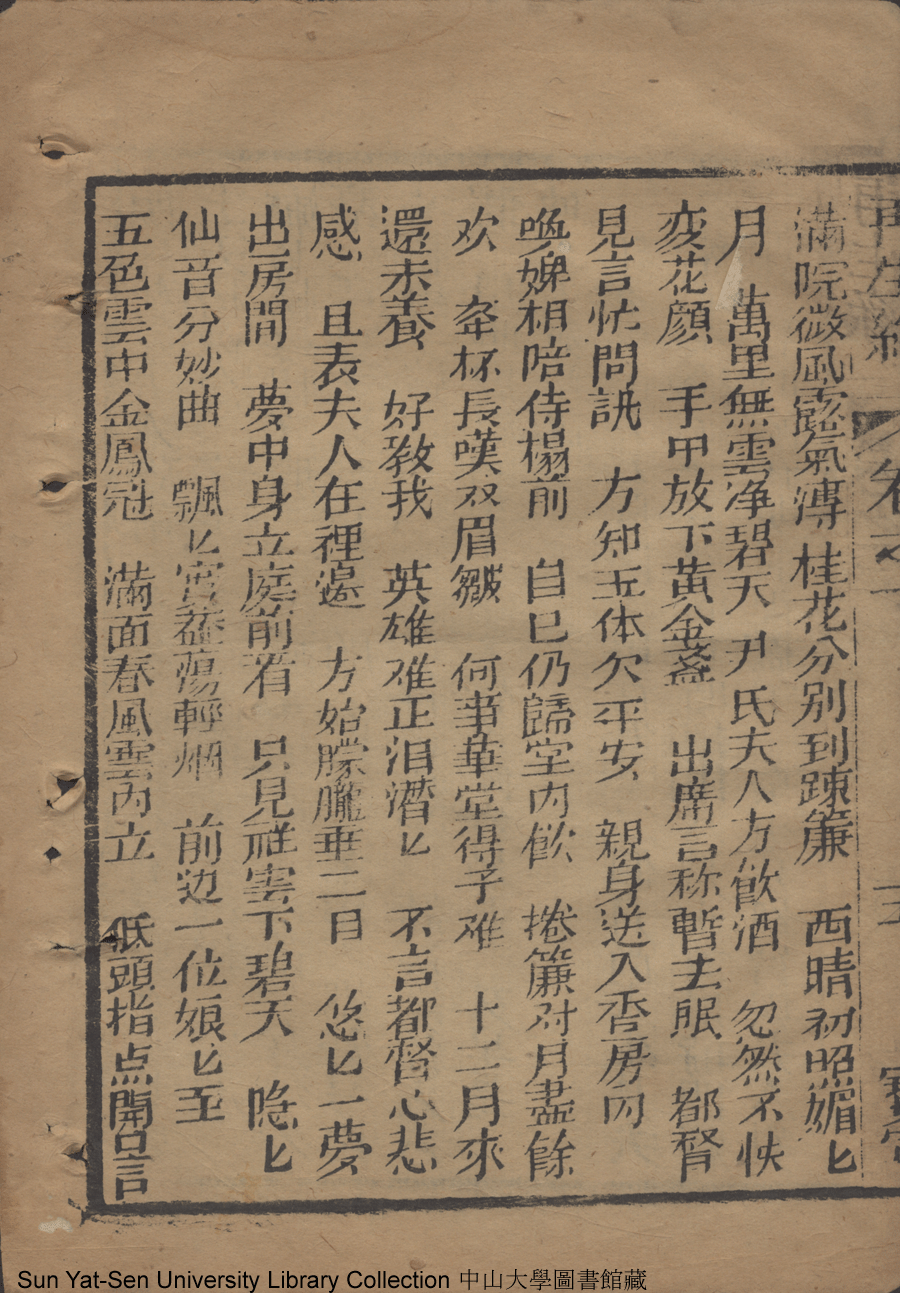 再生緣 卷之一 十三 寳寧
滿院微風露氣溥 桂花分別到踈簾 西晴初照媚〻
月 萬里無雲净碧天 尹氏夫人方飲酒 忽然不快
变花顔 手甲放下黃金盞 出席言称暫去眠 都督
見言忙問訊 方知玉体欠平安 親身送入香房内
喚婢相陪侍榻前 自已仍歸室内飲 捲簾对月盡餘
欢 夆杯長嘆双眉皺 何事華堂得子难 十二月來
還未養 好教我 英雄难正泪潛〻 不言都督心悲
感 且表夫人在裡邉 方始朦朧垂二目 悠〻一夢
出房間 夢中身立庭前看 只見祥雲下碧天 隐〻
仙音分妙曲 飄〻宫蓋蕩輕烟 前边一位娘〻至
五色雲中金鳳冠 滿面春風雲内立 低頭指点開口言
Sun Yat-Sen University Library Collection 中山大學圖書館藏